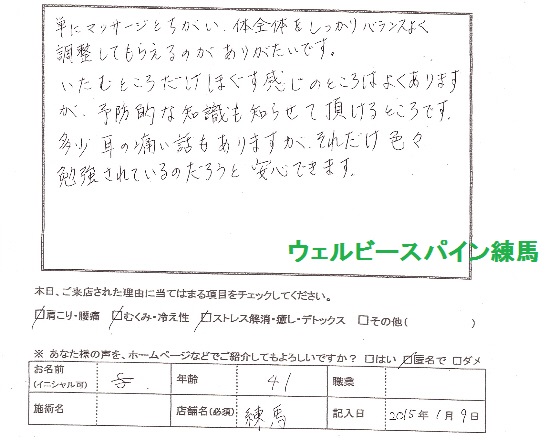 単にマッサージとちがい、体全体をしっかりバランスよく
調整してもらえるのがありがたいです。
いたむところだけほぐす感じのところはよくあります
が、予防的な知識も知らせて頂けるところです。
多少耳の痛い話もありますが、それだけ色々
勉強されているのだろうと安心できます。
ウェルビースパイン練馬
本日、ご来店された理由に当てはまる項目をチェックしてください。
☑肩こり・腰痛 ☑むくみ・冷え性 ☑ストレス解消・癒し・デトックス □その他( )
※ あなた様の声を、ホームページなどでご紹介してもよろしいですか? □はい ☑匿名で □ダメ
お名前 (イニシャル可) 年齢 41 職業
施術名 店舗名(必須) 練馬 記入日 2015年 1月 9日